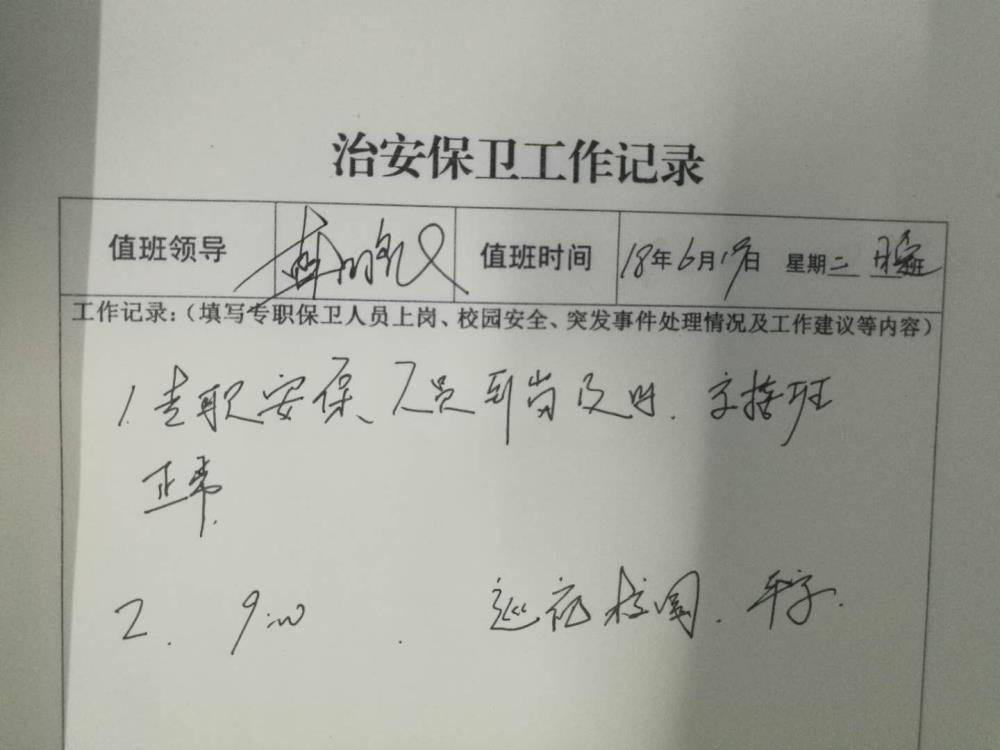 治安保卫工作记录
值班领导 值班时间 18年6月19日 星期二 班
工作记录：（填写专职保卫人员上岗、校园安全、突发事件处理情况及工作建议等内容）
1. 专职安保人员到岗及时. 交接班
正常.
2. 9:00 . 巡视校园. 平安.